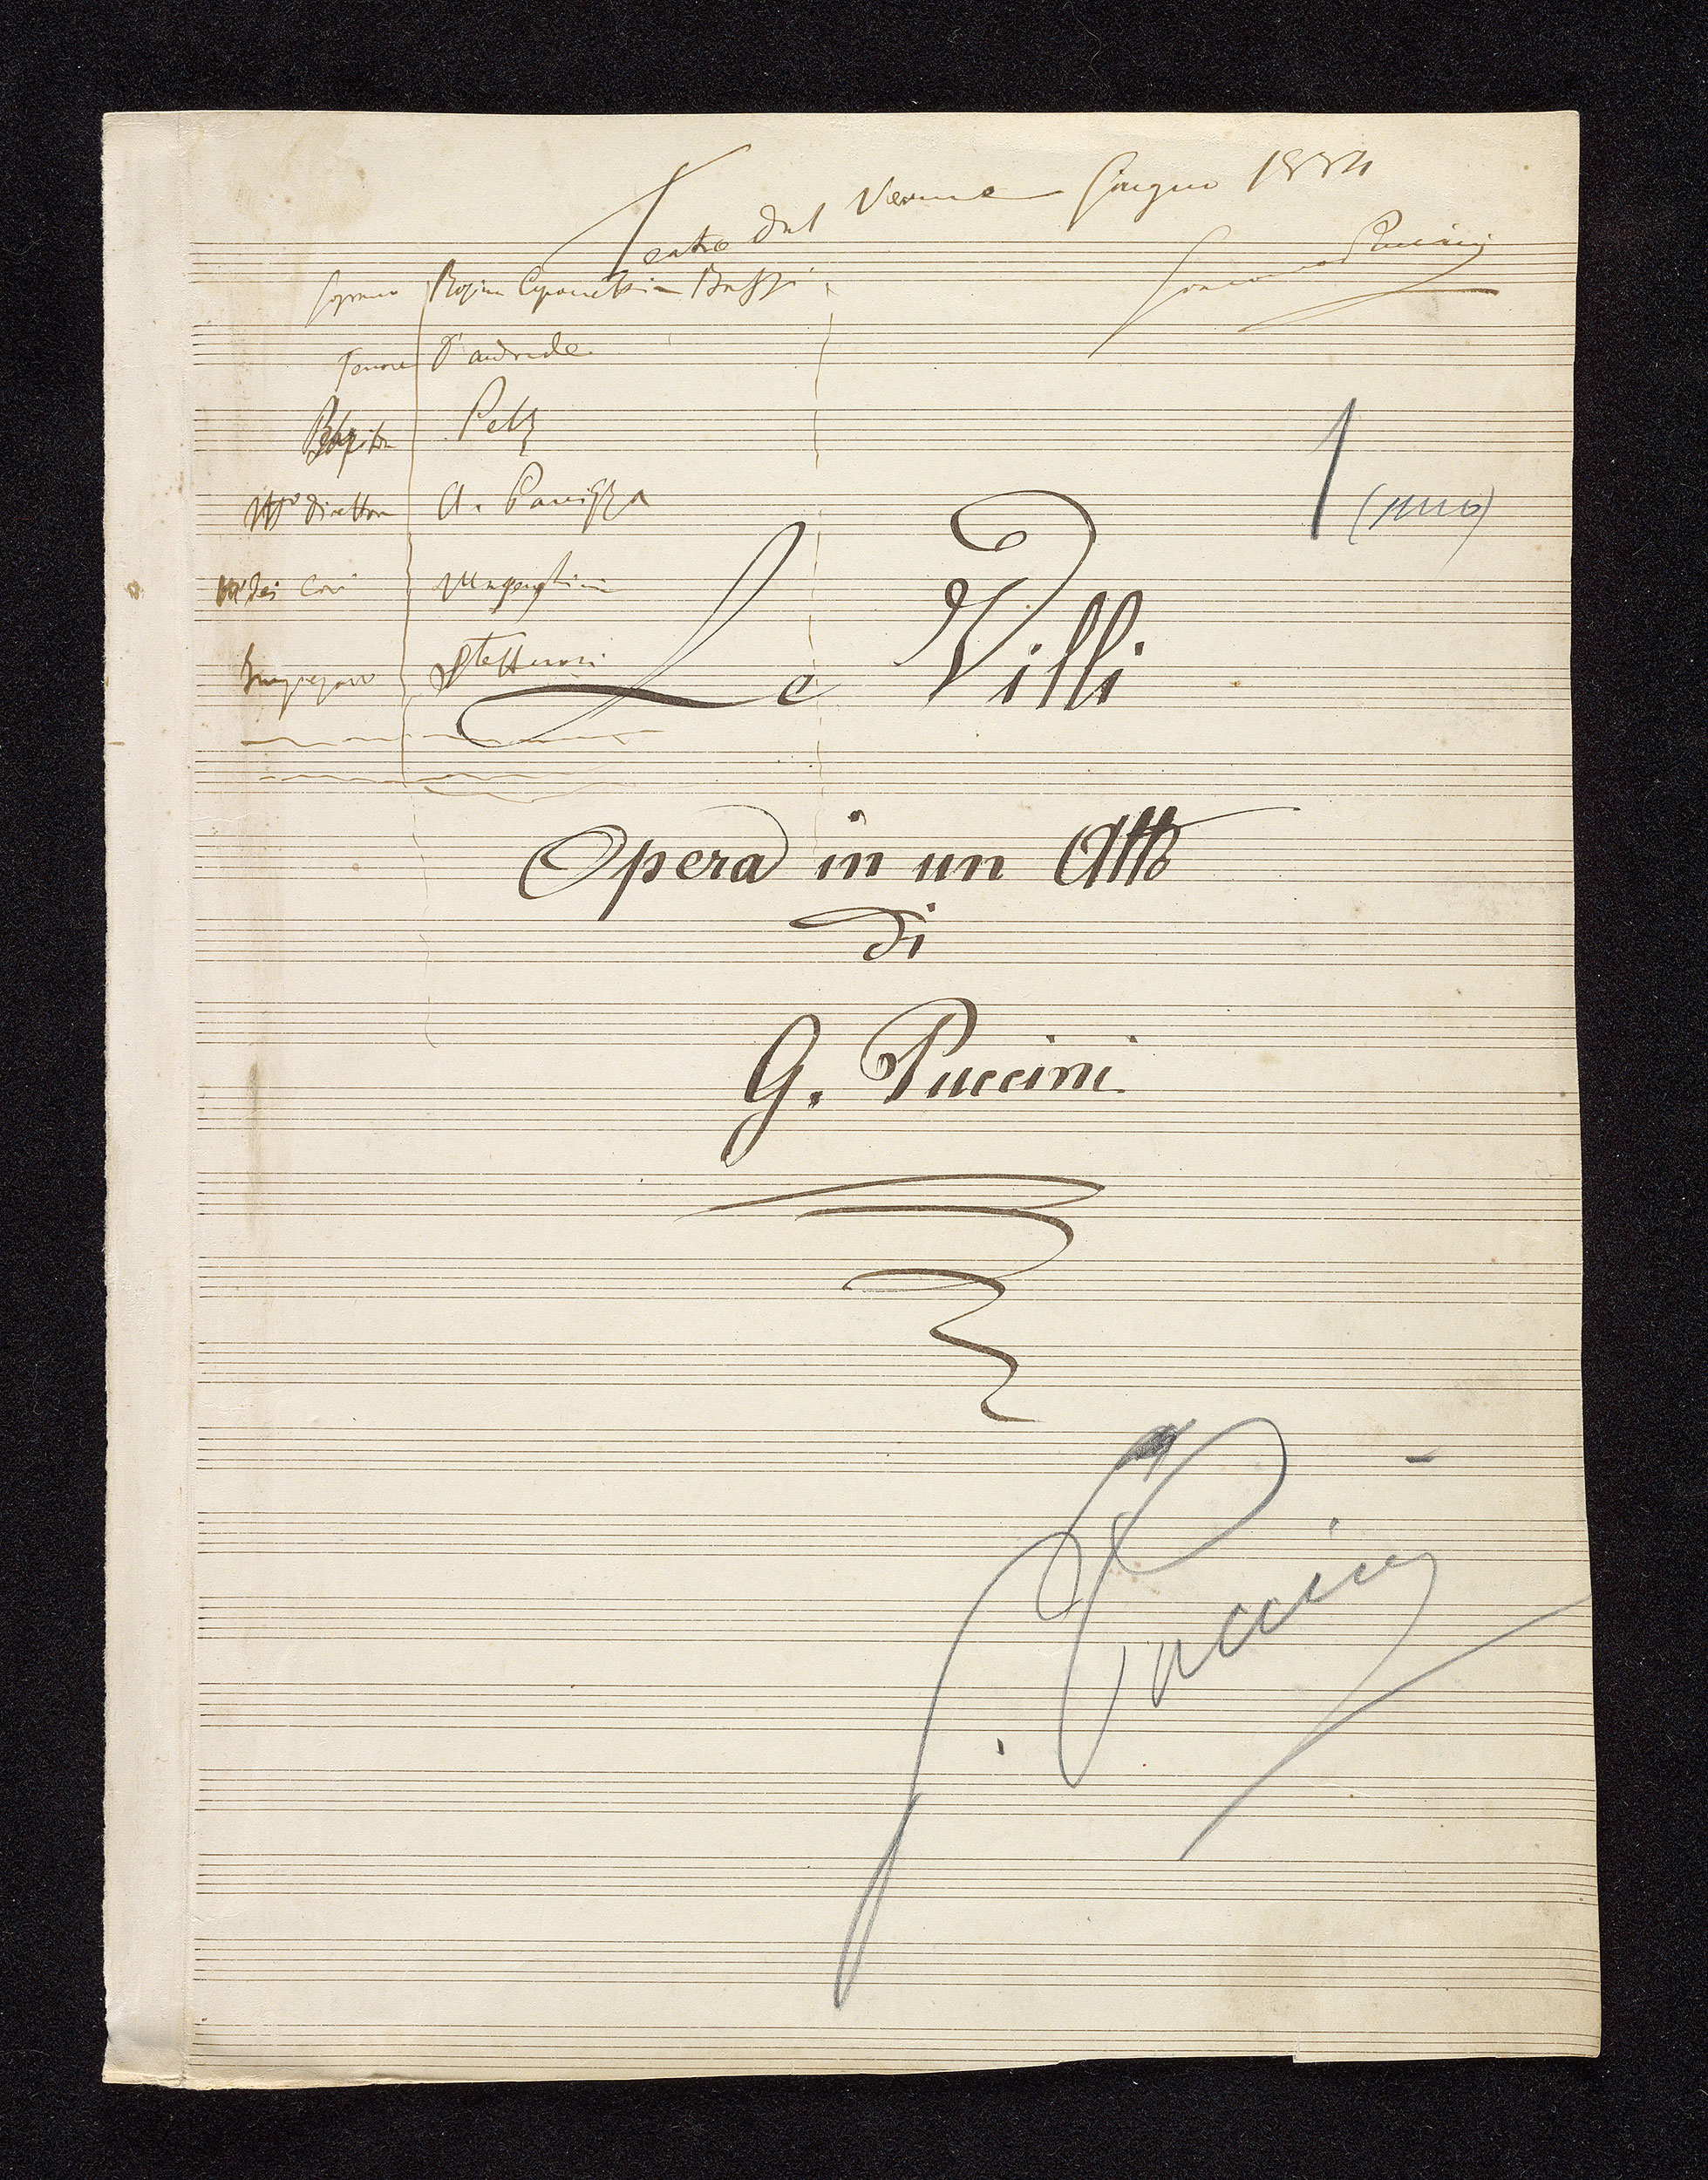 Teatro Dal Verme Giugno 1884
Giacomo Puccini
Soprano Rosina Caponetti Bassi
Tenore D'andrade
Baritono Pelz
M° direttore A. Panizza
M° dei Cori
Impresario Steffenoni
1 (uno)
Le Villi
Opera in un Atto
di
G. Puccini
G. Puccini